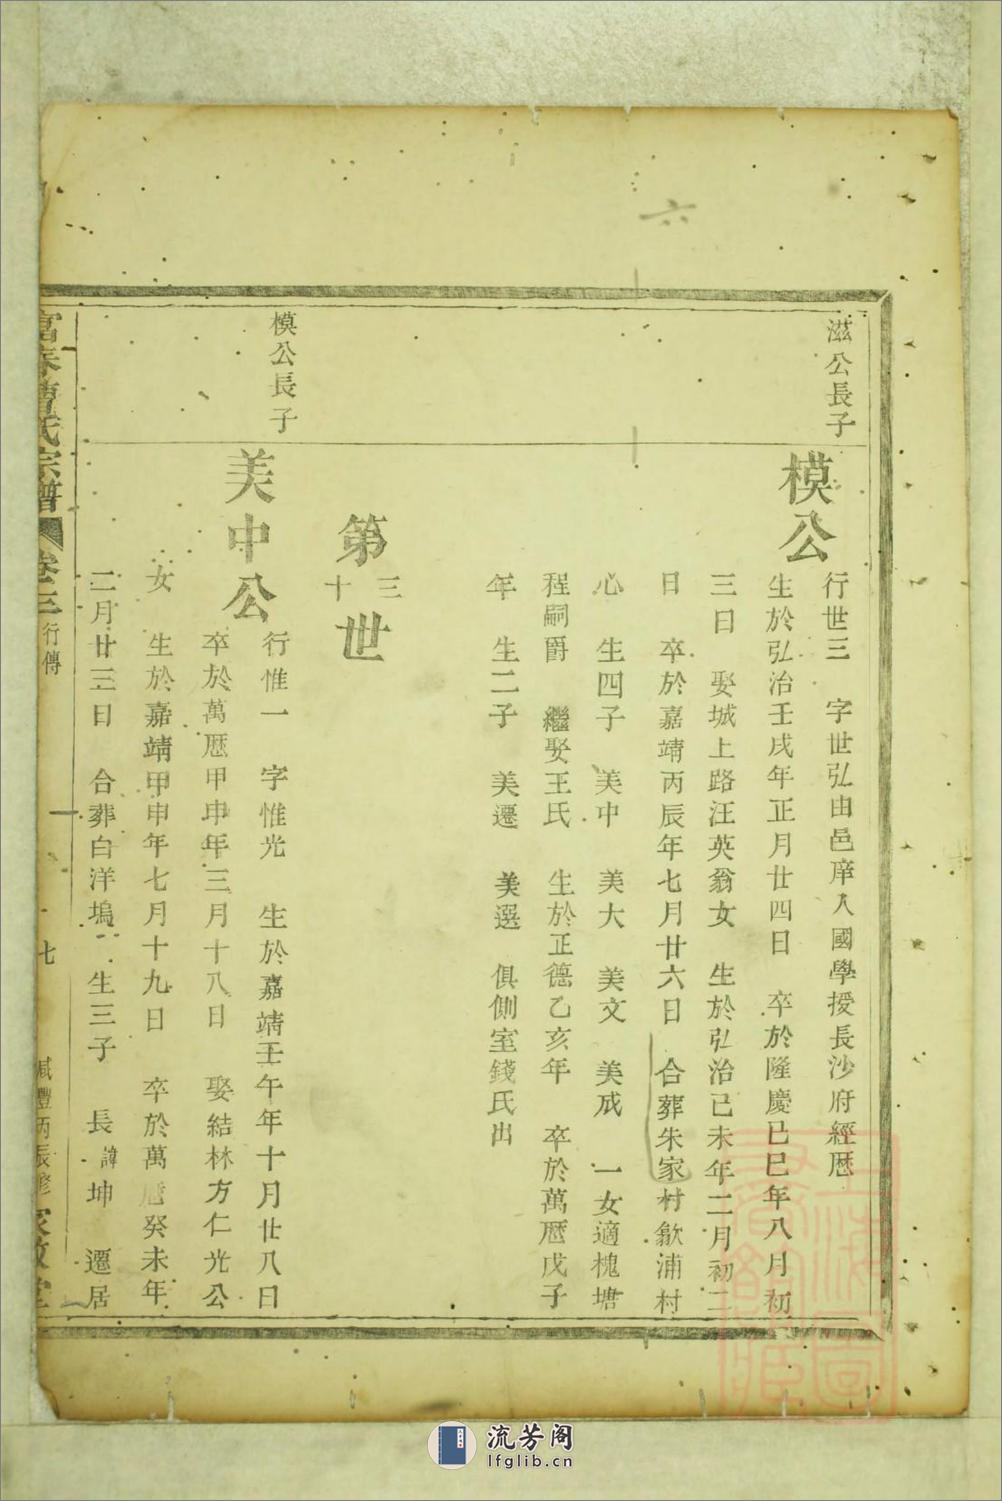 六
滋公長子
模公
行世三　字世弘由邑庠入國學授長沙府經歷
生於弘治壬戌年正月廿四日　卒於隆慶己巳年八月初
三日　娶城上路汪英翁女　生於弘治己未年二月初二
日　卒於嘉靖丙辰年七月廿六日　合葬朱家村歙浦村
心　生四子　美中　美大　美文　美成　一女適槐塘
程嗣爵　繼娶王氏　生於正德乙亥年　卒於萬歷戊子
年　生二子　美遷　美選　俱側室錢氏出
第三十世
模公長子
美中公
行惟一　字惟光　生於嘉靖壬午年十月廿八日
卒於萬歷甲申年三月十八日　娶結林方仁光公
女　生於嘉靖甲申年七月十九日　卒於萬歷癸未年
二月廿三日　合葬白洋塢　生三子　長諱坤　遷居
富春曹氏宗譜　卷三　行傳　十七　咸豐丙辰修
流芳阁
lfglib.cn